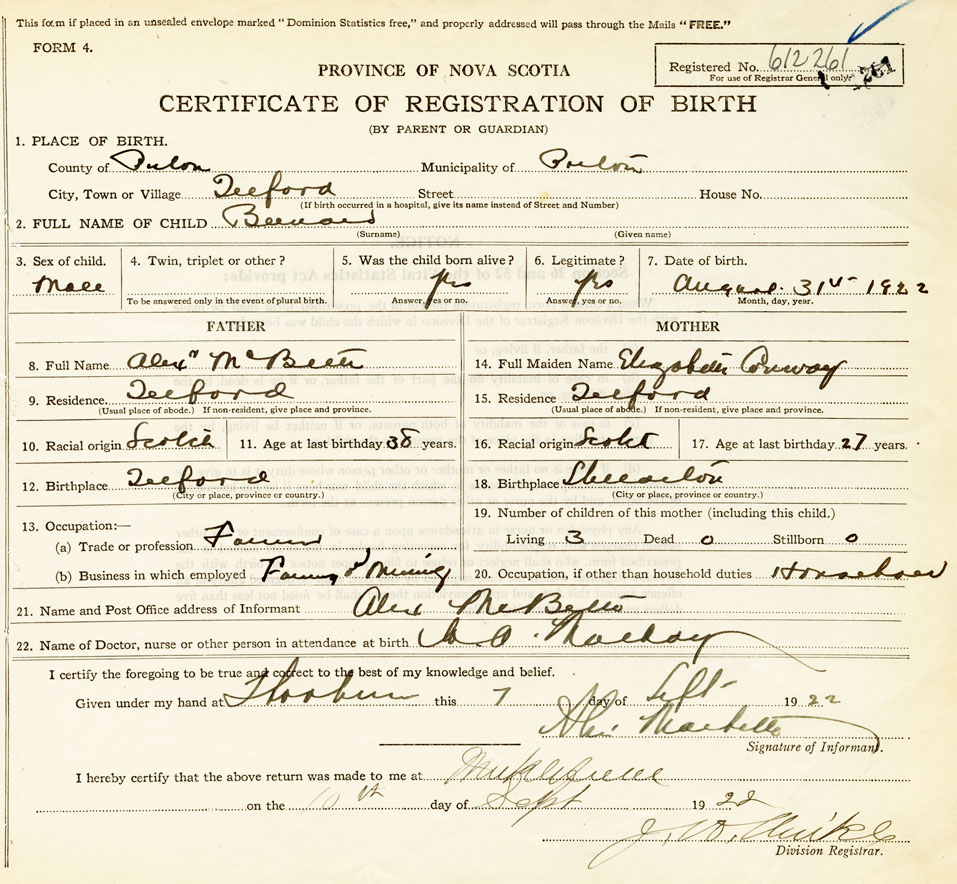 This form if placed in an unsealed envelope marked "Dominion Statistics free," and properly addressed will pass through the Mails "FREE."
FORM 4.
Registered No. 612261
For use of Registrar General only.
261
PROVINCE OF NOVA SCOTIA
CERTIFICATE OF REGISTRATION OF BIRTH
(BY PARENT OR GUARDIAN)
1. PLACE OF BIRTH.
County of Pictou Municipality of Pictou
City, Town or Village Telford Street House No.
(If birth occurred in a hospital, give its name instead of Street and Number)
2. FULL NAME OF CHILD Bernard
(Surname) (Given name)
3. Sex of child. 4. Twin, triplet or other? 5. Was the child born alive? 6. Legitimate? 7. Date of birth.
Male yes yes August 31st 1922
To be answered only in the event of plural birth. Answer, yes or no. Answer, yes or no. Month, day, year.
FATHER MOTHER
8. Full Name Alexr McBeth 14. Full Maiden Name Elizabeth Conway
9. Residence. Telford 15. Residence Telford
(Usual place of abode.) If non-resident, give place and province. (Usual place of abode.) If non-resident, give place and province.
10. Racial origin Scotch 11. Age at last birthday 38 years. 16. Racial origin Scotch 17. Age at last birthday 27 years.
12. Birthplace Telford 18. Birthplace
(City or place, province or country.) (City or place, province or country.)
19. Number of children of this mother (including this child.)
13. Occupation:—
(a) Trade or profession Farmer Living 3 Dead 0 Stillborn 0
(b) Business in which employed Farming & Mining 20. Occupation, if other than household duties
21. Name and Post Office address of Informant Alex McBeth
22. Name of Doctor, nurse or other person in attendance at birth
I certify the foregoing to be true and correct to the best of my knowledge and belief.
Given under my hand at Thorburn this 7 day of Sept 1922
Signature of Informant.
I hereby certify that the above return was made to me at
on the 10th day of Sept 1922
Division Registrar.